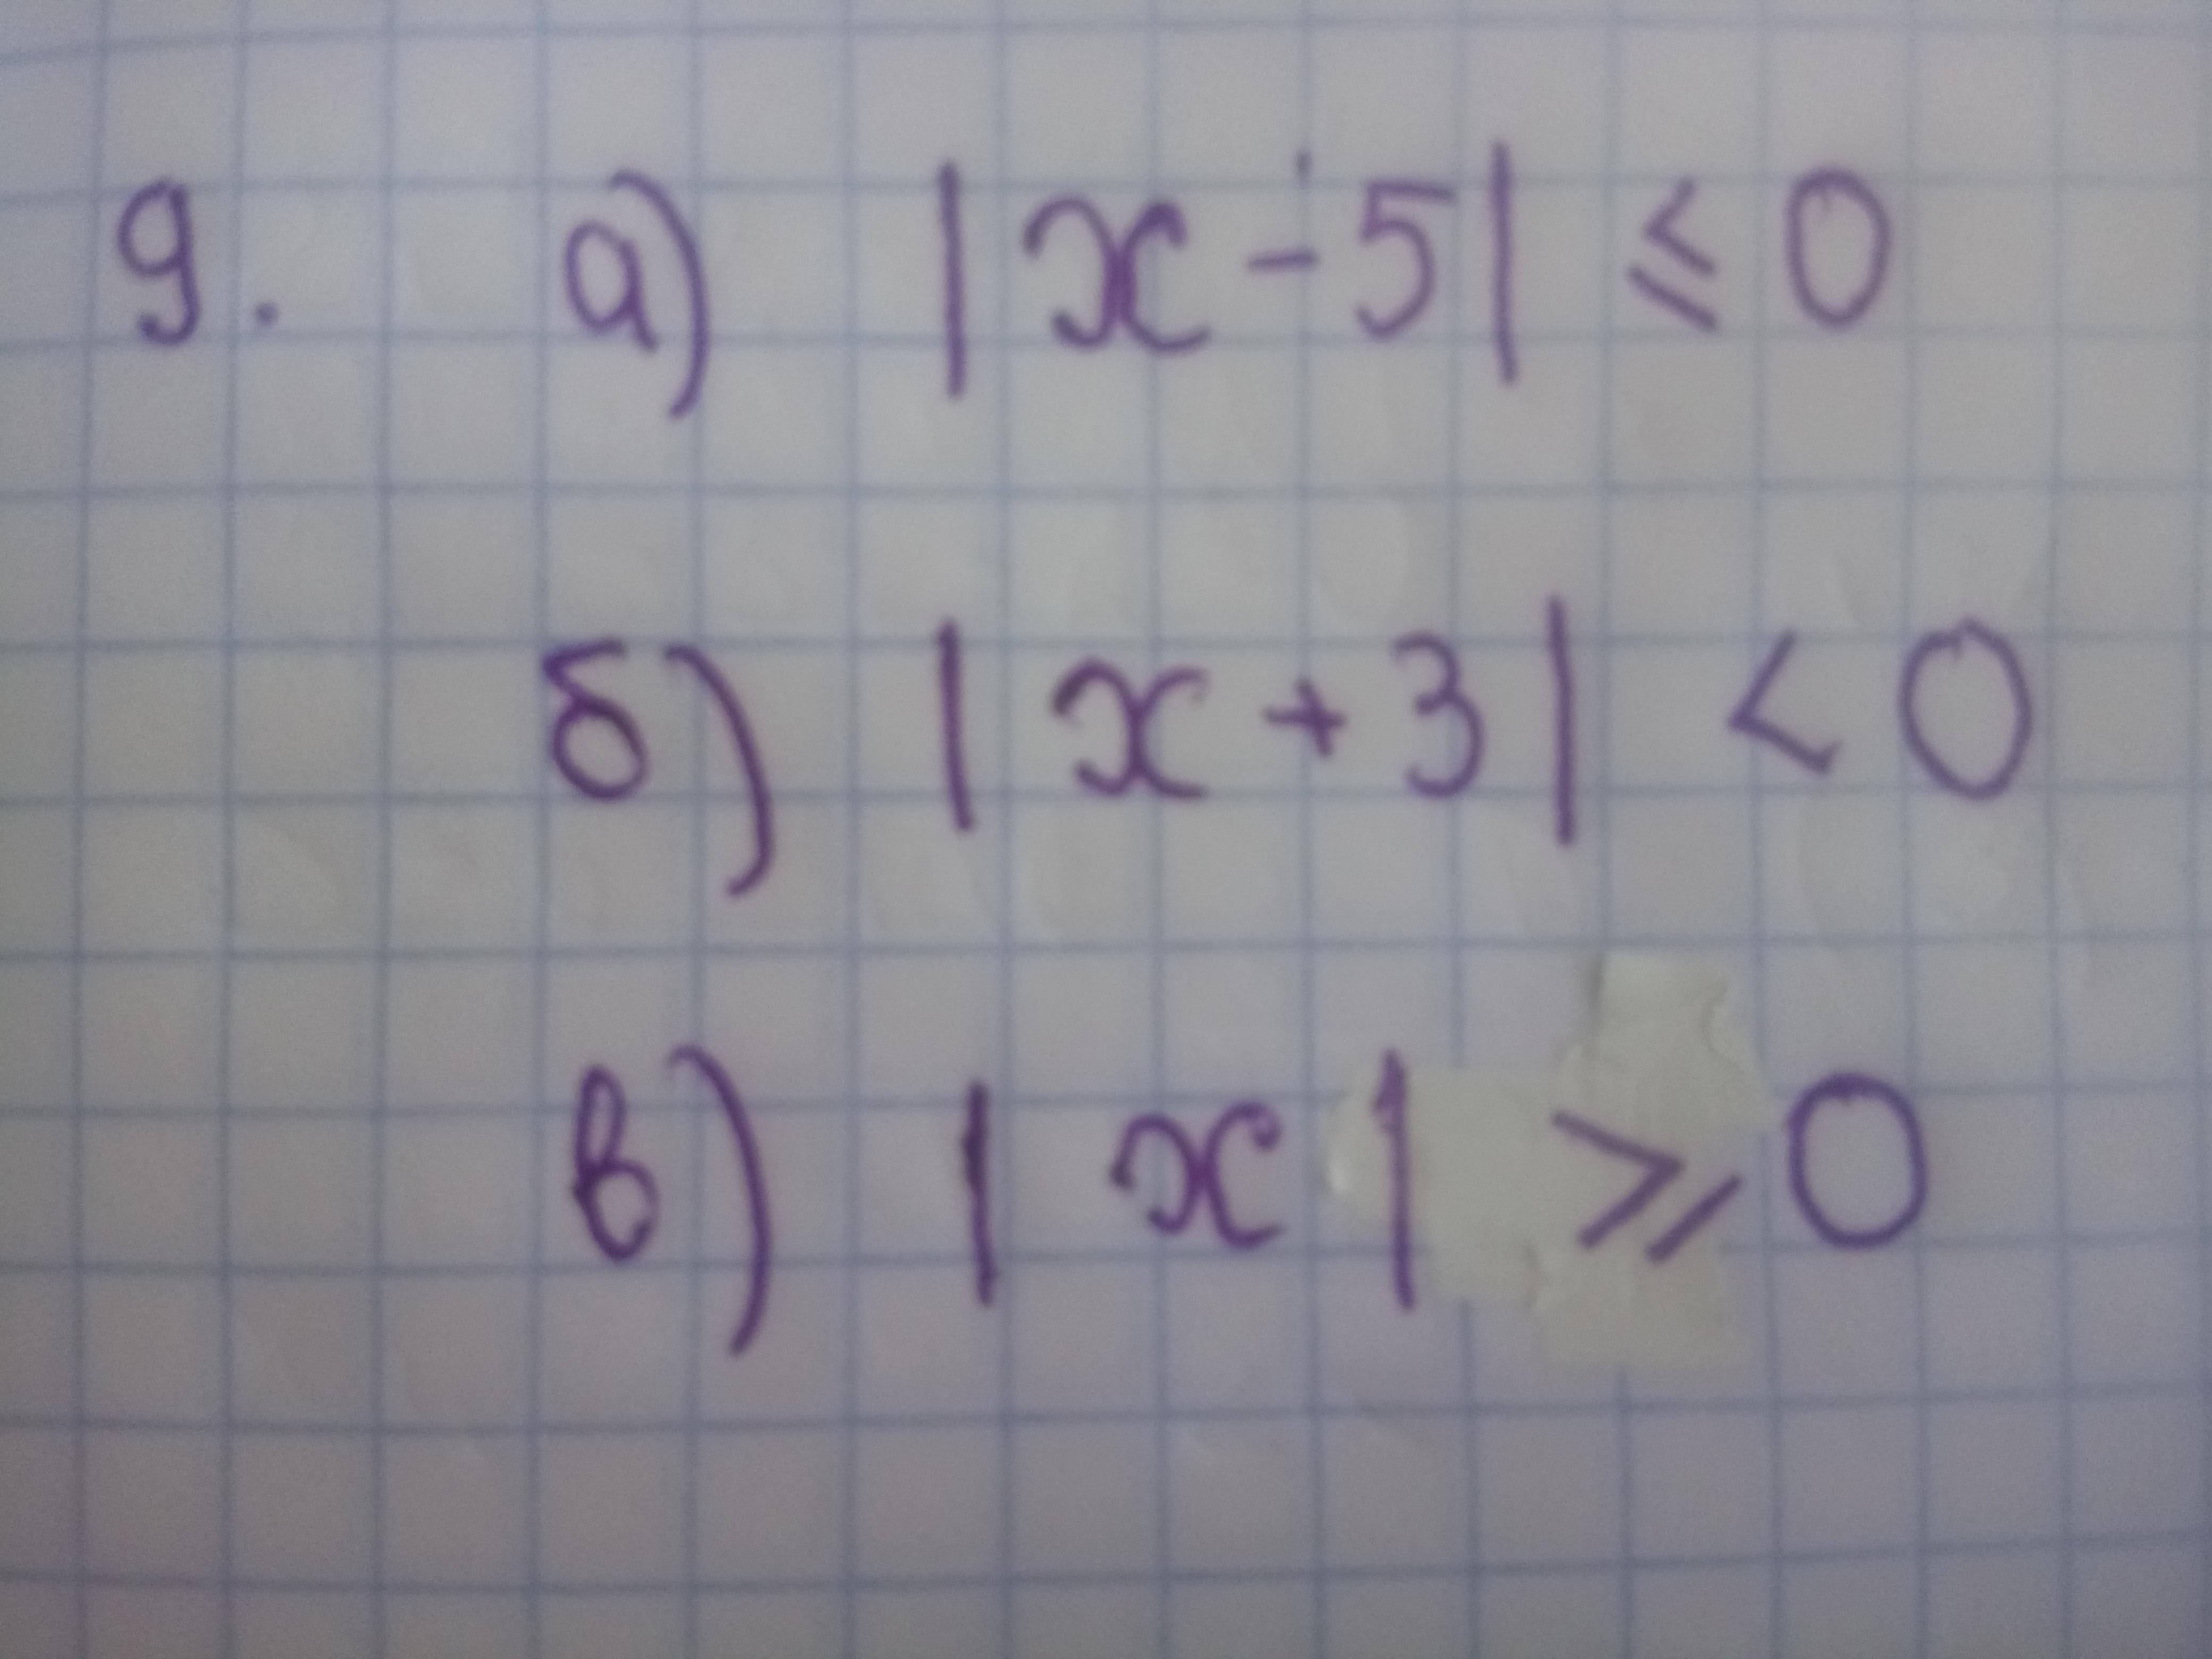 9. а) |x-5| ⩽ 0
б) |x+3| < 0
в) |x| ⩾ 0